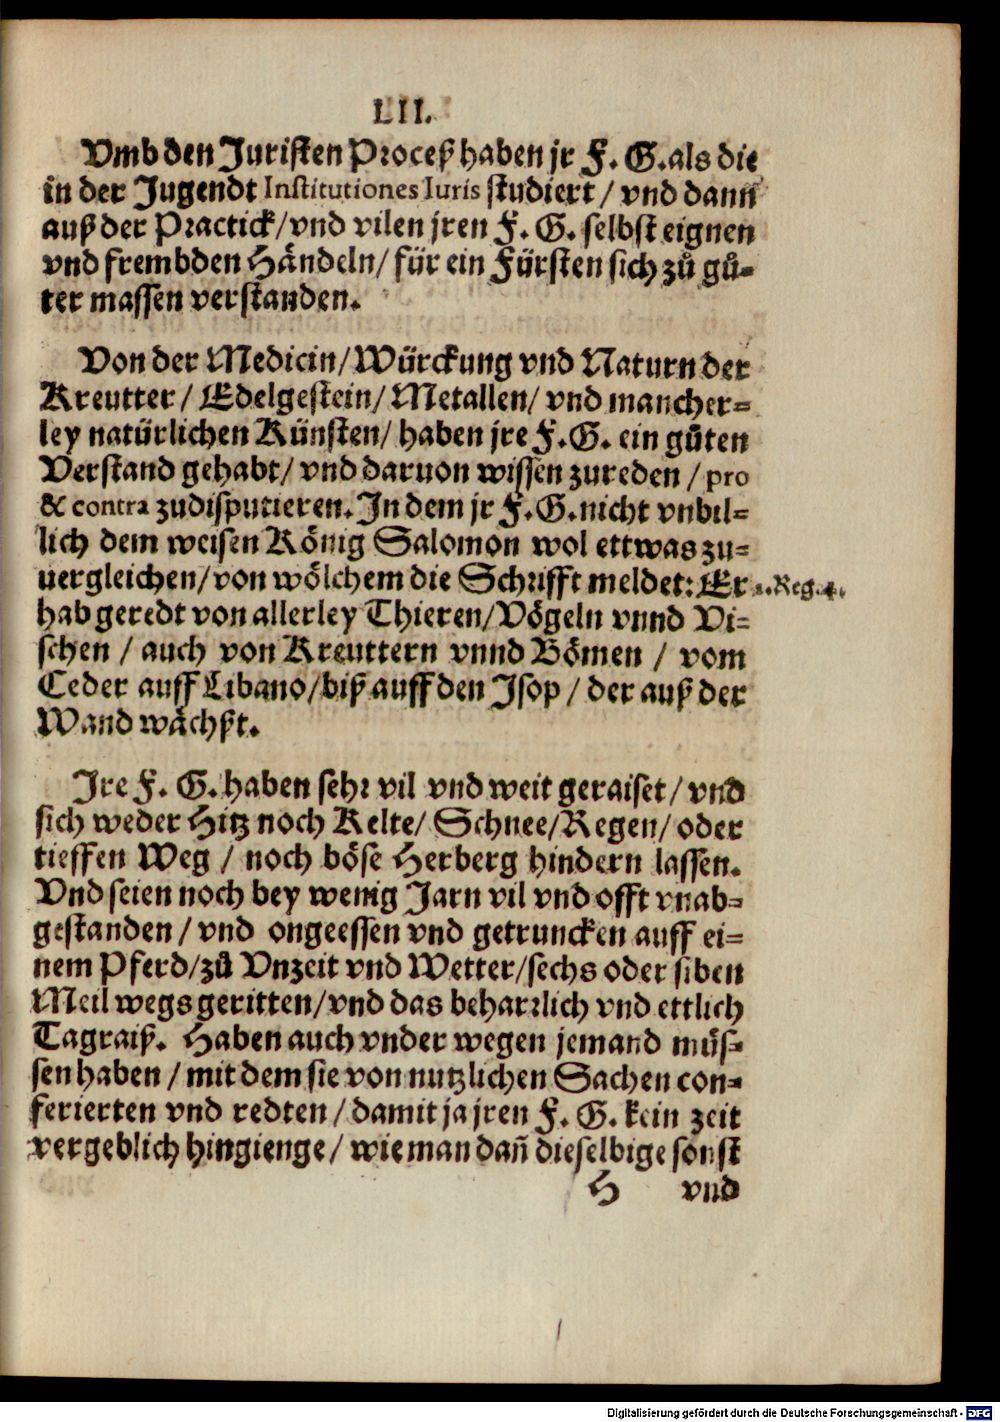 LII.
Vmb den Juristen Proceß haben jr F. G. als die
in der Jugendt Institutiones Iuris studiert / vnd dann
auß der Practick / vnd vilen jren F. G. selbst eignen
vnd frembden Händeln / für ein Fürsten sich zů gů-
ter massen verstanden.
Von der Medicin / Würckung vnd Naturn der
Kreutter / Edelgestein / Metallen / vnd mancher-
ley natürlichen Künsten / haben jre F. G. ein gůten
Verstand gehabt / vnd daruon wissen zureden / pro
& contra zudisputieren. In dem jr F. G. nicht vnbil-
lich dem weisen König Salomon wol ettwas zu-
uergleichen / von wölchem die Schrifft meldet: Er
hab geredt von allerley Thieren / Vögeln vnnd Vi-
schen / auch von Kreuttern vnnd Bömen / vom
Ceder auff Libano / biß auff den Isop / der auß der
Wand wächßt.
1. Reg. 4.
Jre F. G. haben sehr vil vnd weit geraiset / vnd
sich weder Hitz noch Kelte / Schnee / Regen / oder
tieffen Weg / noch böse Herberg hindern lassen.
Vnd seien noch bey wenig Jarn vil vnd offt vnab-
gestanden / vnd ongeessen vnd getruncken auff ei-
nem Pferd / zů Vnzeit vnd Wetter / sechs oder siben
Meil wegs geritten / vnd das beharrlich vnd ettlich
Tagraiß. Haben auch vnder wegen jemand müs-
sen haben / mit dem sie von nutzlichen Sachen con-
ferierten vnd redten / damit ja jren F. G. kein zeit
vergeblich hingienge / wie man dañ dieselbige sonst
H vnd
Digitalisierung gefördert durch die Deutsche Forschungsgemeinschaft - DFG